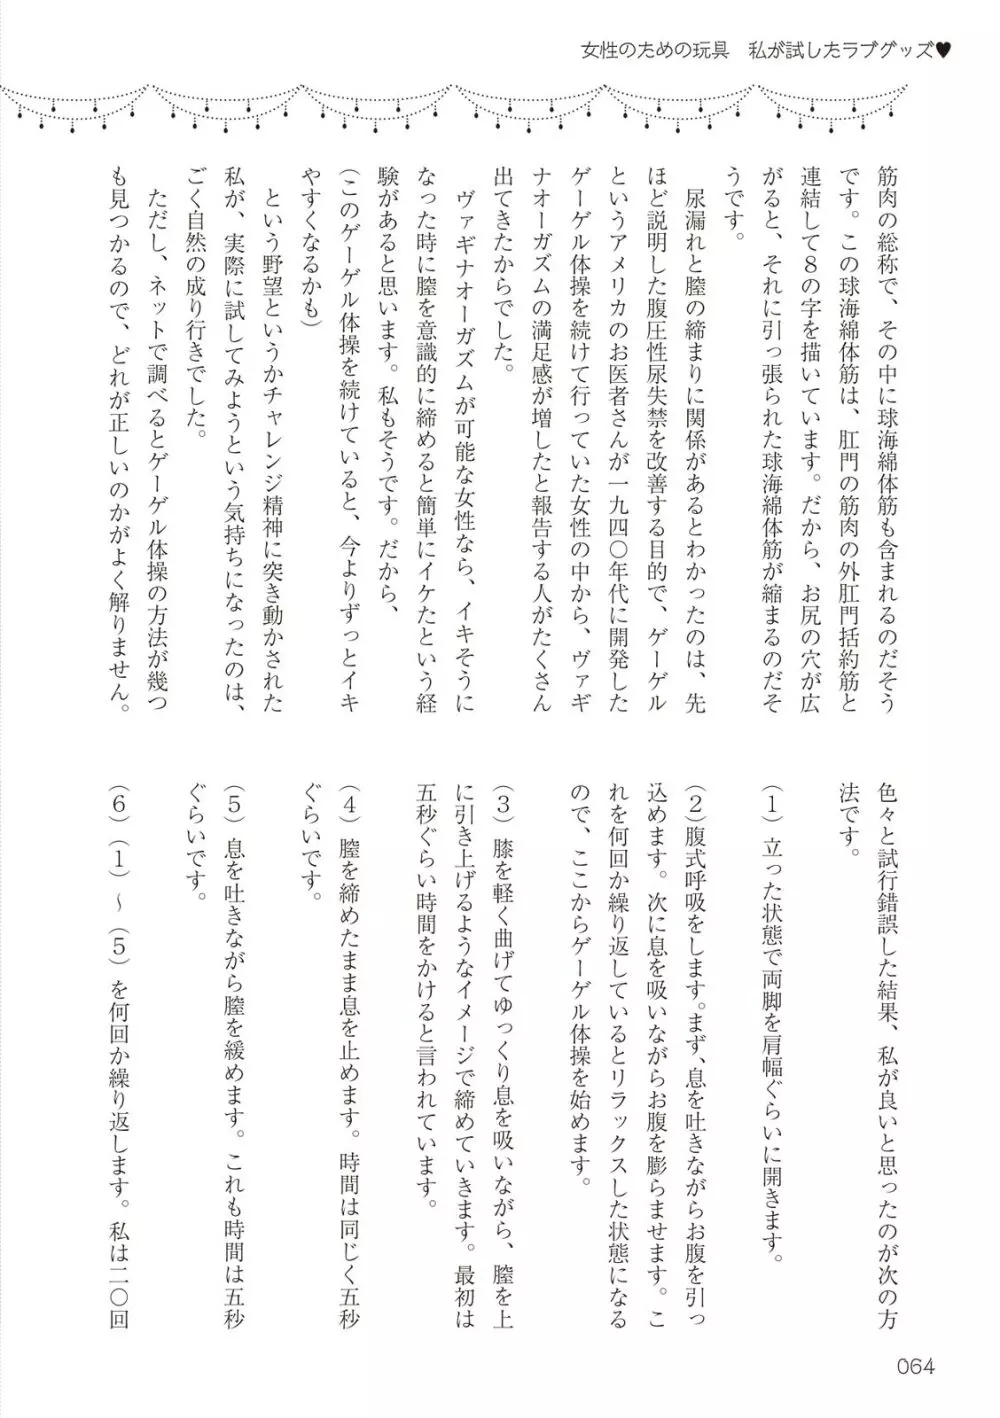 女性のための玩具　私が試したラブグッズ♥
筋肉の総称で、その中に球海綿体筋も含まれるのだそう
です。この球海綿体筋は、肛門の筋肉の外肛門括約筋と
連結して８の字を描いています。だから、お尻の穴が広
がると、それに引っ張られた球海綿体筋が縮まるのだそ
うです。
　尿漏れと膣の締まりに関係があるとわかったのは、先
ほど説明した腹圧性尿失禁を改善する目的で、ゲーゲル
というアメリカのお医者さんが一九四〇年代に開発した
ゲーゲル体操を続けて行っていた女性の中から、ヴァギ
ナオーガズムの満足感が増したと報告する人がたくさん
出てきたからでした。
　ヴァギナオーガズムが可能な女性なら、イキそうに
なった時に膣を意識的に締めると簡単にイケたという経
験があると思います。私もそうです。だから、
(このゲーゲル体操を続けていると、今よりずっとイキ
やすくなるかも)
　という野望というかチャレンジ精神に突き動かされた
私が、実際に試してみようという気持ちになったのは、
ごく自然の成り行きでした。
　ただし、ネットで調べるとゲーゲル体操の方法が幾つ
も見つかるので、どれが正しいのかがよく解りません。
色々と試行錯誤した結果、私が良いと思ったのが次の方
法です。
（１）立った状態で両脚を肩幅ぐらいに開きます。
（２）腹式呼吸をします。まず、息を吐きながらお腹を引っ
込めます。次に息を吸いながらお腹を膨らませます。こ
れを何回か繰り返しているとリラックスした状態になる
ので、ここからゲーゲル体操を始めます。
（３）膝を軽く曲げてゆっくり息を吸いながら、膣を上
に引き上げるようなイメージで締めていきます。最初は
五秒ぐらい時間をかけると言われています。
（４）膣を締めたまま息を止めます。時間は同じく五秒
ぐらいです。
（５）息を吐きながら膣を緩めます。これも時間は五秒
ぐらいです。
（６）（１）～（５）を何回か繰り返します。私は二〇回
064